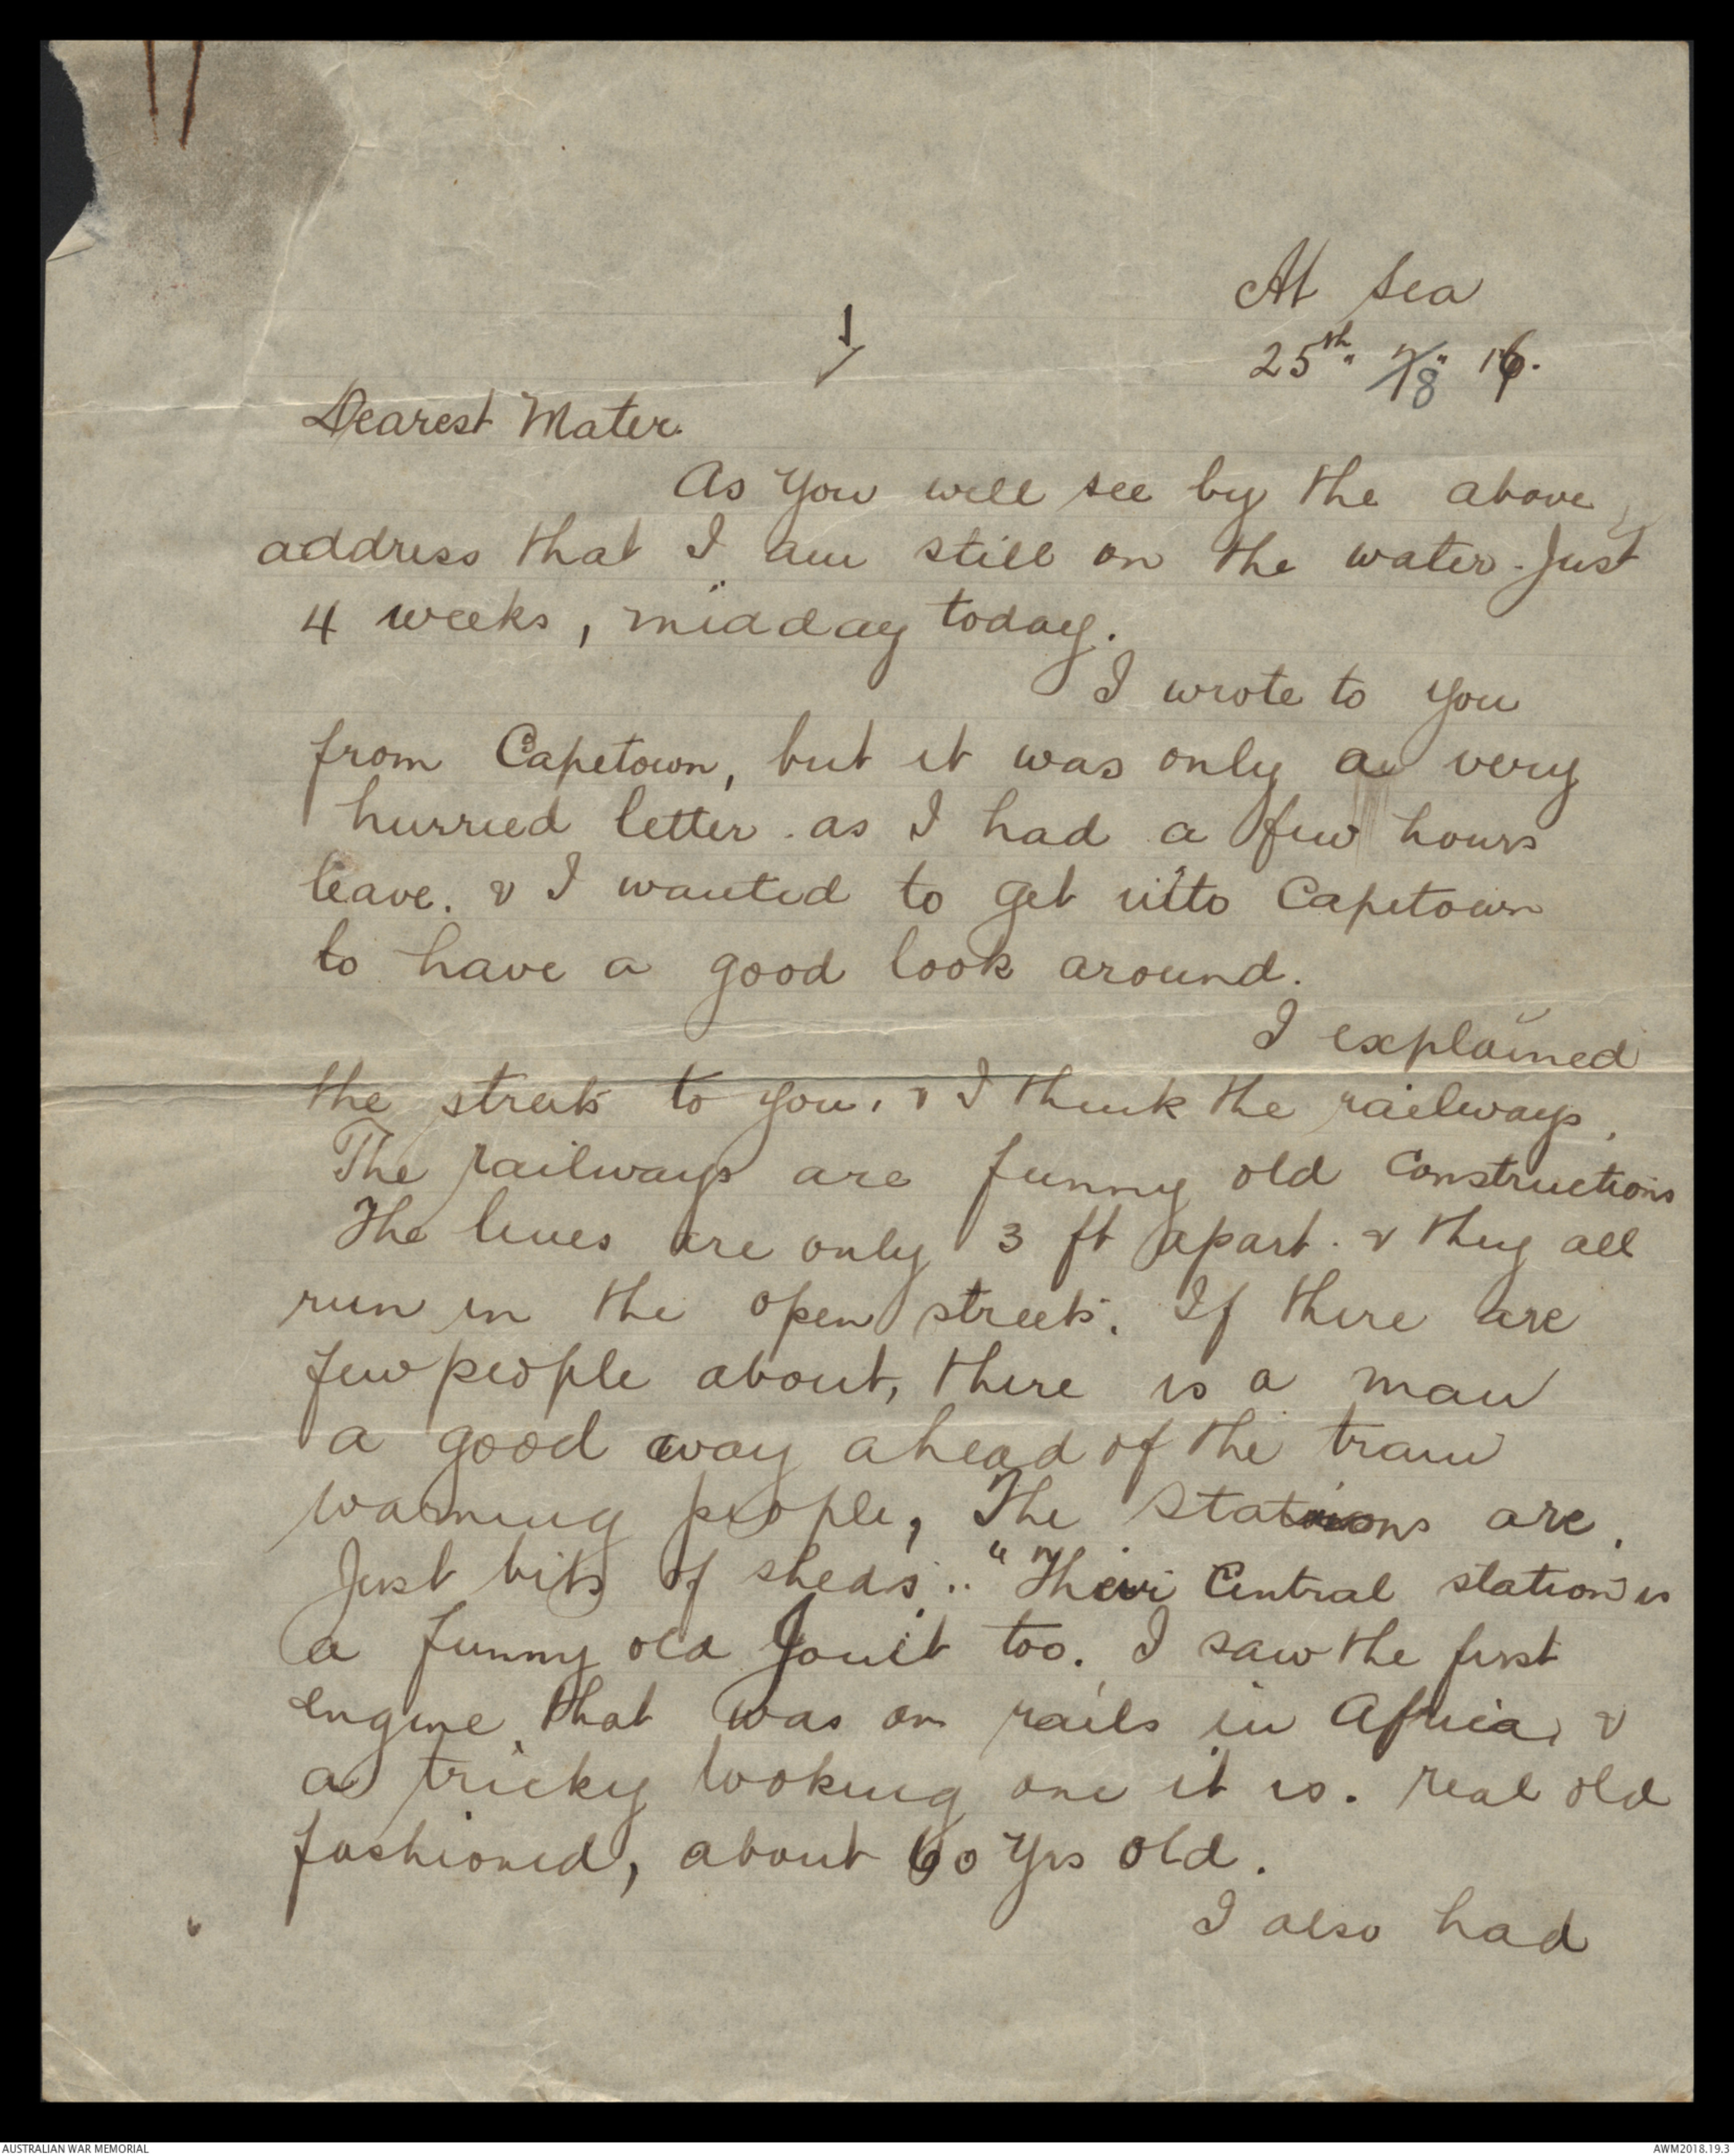 At Sea
1
25th. 8" 16.
Dearest Mater.
As you will see by the above
address that I am still on the water. Just
4 weeks, midday today.
I wrote to you
from Capetown, but it was only a very
hurried letter. as I had a few hours
leave. & I wanted to get into Capetown
to have a good look around.
I explained
the streets to you, & I think the railways.
The railways are funny old constructions
The lines are only 3 ft apart. & they all
run in the open streets. If there are
few people about, there is a man
a good way ahead of the train
warning people, The stations are.
Just bits of sheds.. "Their Central station is
a funny old Joint too. I saw the first
engine that was on rails in Africa, &
a tricky looking one it is. real old
fashioned, about 60 yrs old.
I also had
AUSTRALIAN WAR MEMORIAL
AWM2018.19.3